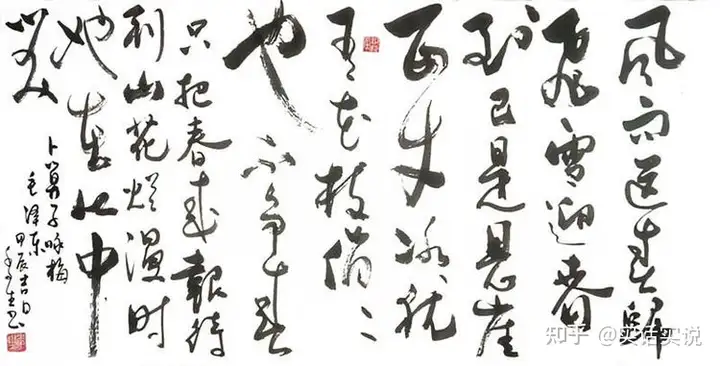 风雨送春归
飞雪迎春
到已是悬崖
百丈冰犹
有花枝俏〻
也不争春
只把春来报待
到山花烂漫时
她在丛中
笑
卜算子咏梅
毛泽东 甲辰吉日
生书
知乎 @实话实说